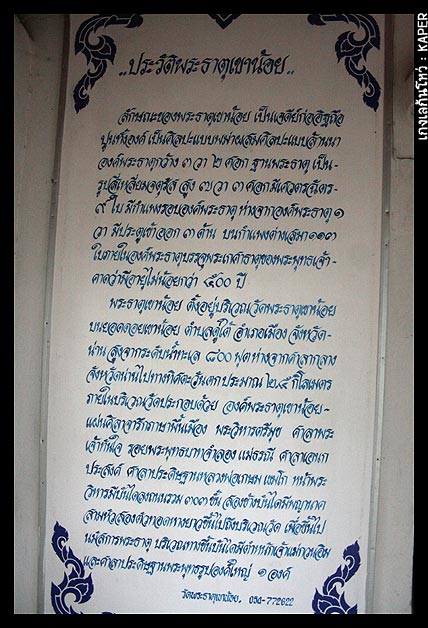 ..ประวัติพระธาตุเขาน้อย..
ลักษณะของพระธาตุเขาน้อย เป็นเจดีย์ก่ออิฐถือ
ปูนทั้งองค์ เป็นศิลปะแบบพม่าผสมศิลปะแบบล้านนา
องค์พระธาตุกว้าง ๓ วา ๒ ศอก ฐานพระธาตุ เป็น-
รูปสี่เหลี่ยมจตุรัส สูง ๗ วา ๓ ศอก มีเศวตรฉัตร-
๙ ใบ มีกำแพงรอบองค์พระธาตุ ห่างจากองค์พระธาตุ ๑
วา มีประตูเข้าออก ๓ ด้าน บนกำแพงต่างเสมา ๑๑๓
ใบ ภายในองค์พระธาตุบรรจุพระเกศาธาตุของพระพุทธเจ้า-
คาดว่ามีอายุไม่น้อยกว่า ๕๐๐ ปี
พระธาตุเขาน้อย ตั้งอยู่บริเวณวัดพระธาตุเขาน้อย
บนยอดดอยเขาน้อย ตำบลดู่ใต้ อำเภอเมือง จังหวัด-
น่าน สูงจากระดับน้ำทะเล ๘๐๐ ฟุต ห่างจากศาลากลาง
จังหวัดน่านไปทางทิศตะวันตกประมาณ ๒.๕ กิโลเมตร
ภายในบริเวณวัดประกอบด้วย องค์พระธาตุเขาน้อย-
แผ่นศิลาจารึกภาษาพื้นเมือง พระวิหารตรีมุข ศาลาพระ
เจ้าทันใจ รอยพระพุทธบาทจำลอง แม่ธรณี ศาลาเอนก
ประสงค์ ศาลาประดิษฐานหลวงพ่อเกษม เขมโก หน้าพระ
วิหารมีบันไดลงถนนรวม ๓๐๓ ขั้น สองข้างบันไดมีพญานาค
สามหัวสองตัวทอดหางยาวขึ้นไปถึงบริเวณวัด เพื่อขึ้นไป
นมัสการพระธาตุ บริเวณทางขึ้นบันไดมีตำหนักเจ้าแม่กวนอิม
และศาลาประดิษฐานพระพุทธรูปองค์ใหญ่ ๑ องค์
วัดพระธาตุเขาน้อย. 054-772622
เกงเลกันโทว่ : KAPER